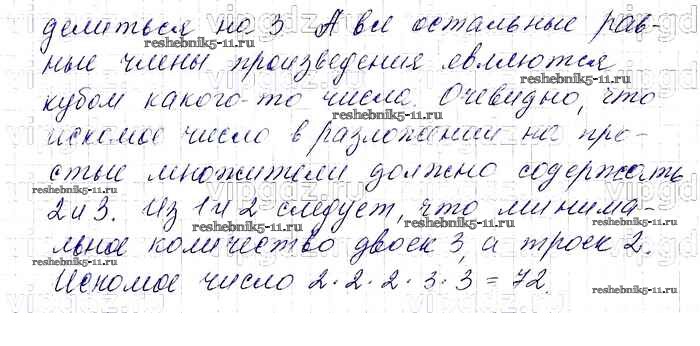 делиться на 3 А все остальные рав-
ные члены произведения являются
кубом какого-то числа. Очевидно, что
искомое число в разложении на про-
стые множители должно содержать
2 и 3. Из 1 и 2 следует, что минима-
льное количество двоек 3, а троек 2.
Искомое число 2·2·2·3·3=72.
reshebnik5-11.ru
reshebnik5-11.ru
reshebnik5-11.ru
reshebnik5-11.ru
reshebnik5-11.ru
reshebnik5-11.ru
reshebnik5-11.ru
reshebnik5-11.ru